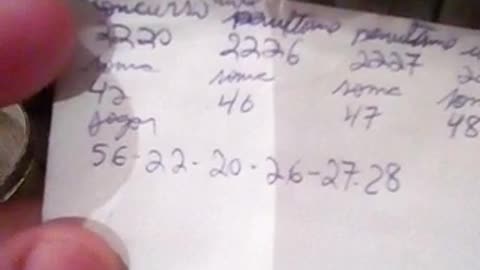 concurso penultimo penultimo
2220 2226 2227
soma soma soma
42 46 47 48
jogar
56-22-20-26-27-28